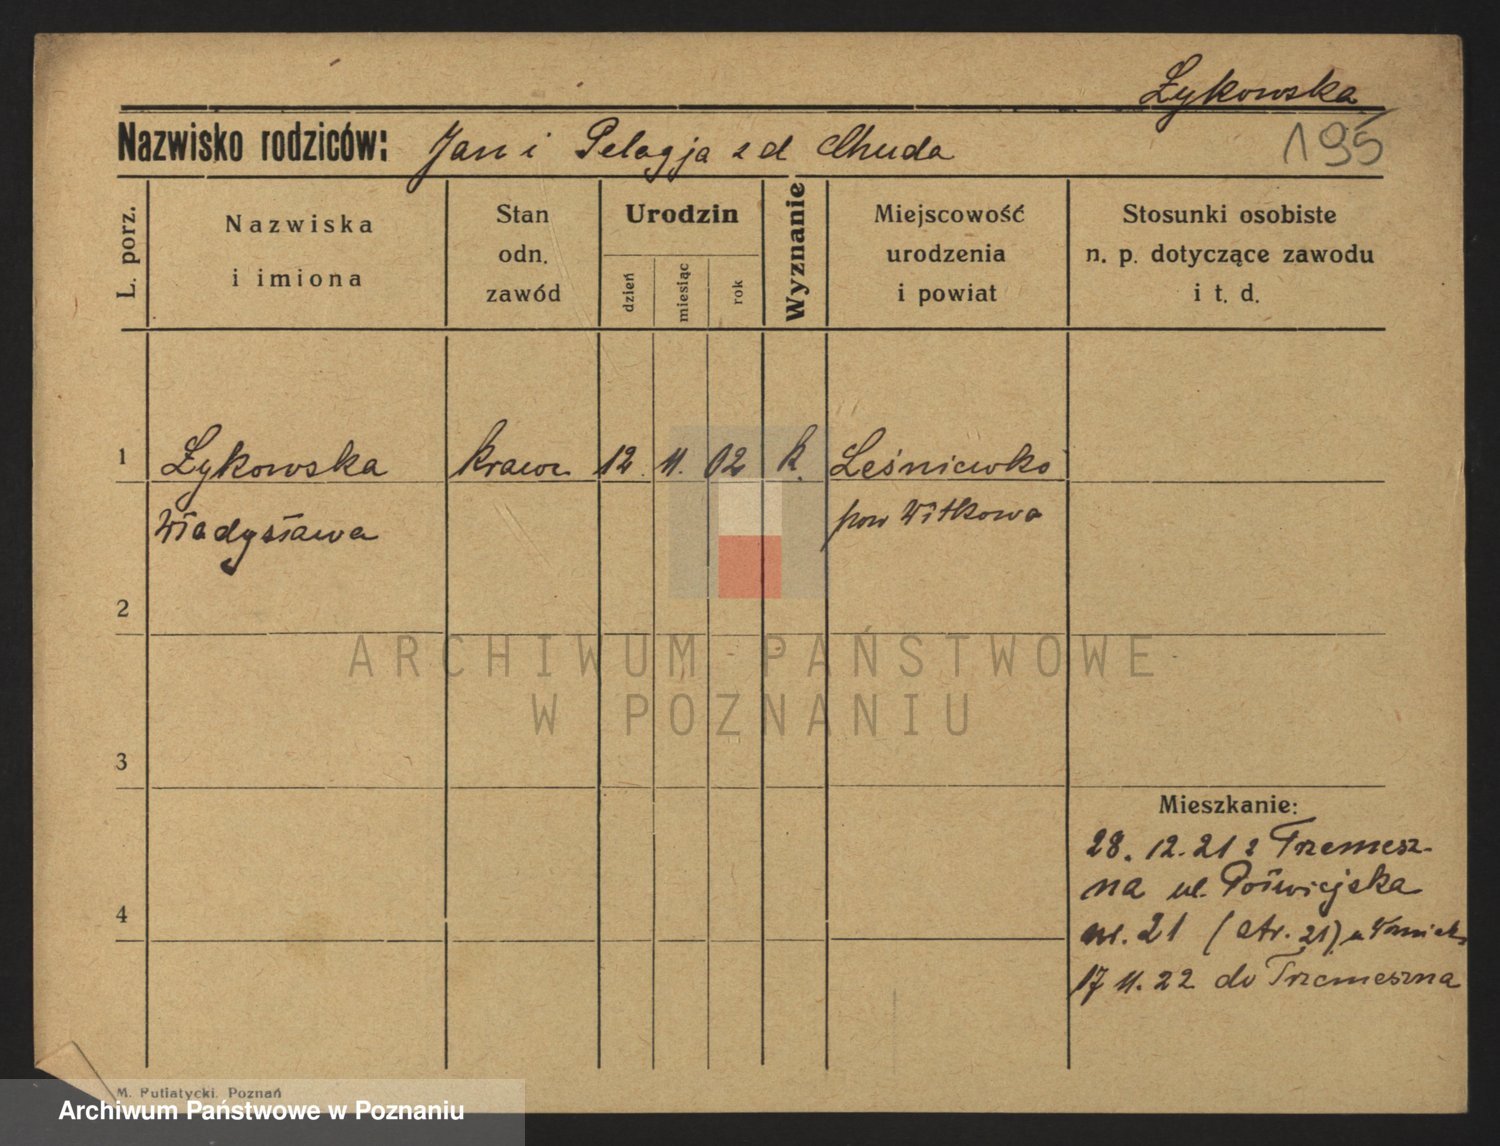 Łykowska
195
Nazwisko rodziców: Jan i Pelagja z d Chuda
L. porz.
Nazwiska
i imiona
Stan
odn.
zawód
Urodzin
dzień
miesiąc
rok
Wyznanie
Miejscowość
urodzenia
i powiat
Stosunki osobiste
n. p. dotyczące zawodu
i t. d.
1 Łykowska krawc 12. 11. 02 k. Leśniewko
Władysława pow Witkowo
2
3
4
Mieszkanie:
28. 12. 21 z Trzemesz-
na ul. Półwiejska
nr. 21 (str. 21) u
17 11. 22 do Trzemeszna
M. Putiatycki. Poznań
ARCHIWUM PAŃSTWOWE
W POZNANIU
Archiwum Państwowe w Poznaniu